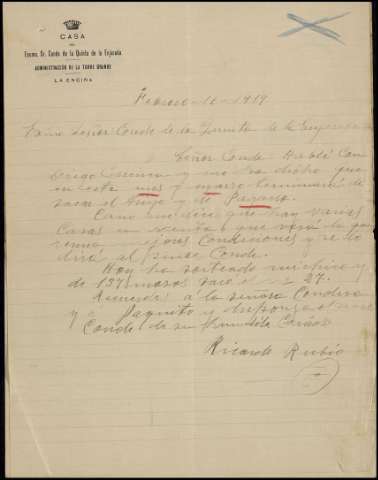 CASA
DEL
Excmo. Sr. Conde de la Quinta de la Enjarada
ADMINISTRACIÓN DE LA TORRE GRANDE
LA ENCINA
Febrero-16-1919
Exmo Señor Conde de la Quinta de la Enjarada
Señor Conde Hablé Con
Diego y me ha dicho que
en este mes y marzo terminara de
sacar el suyo y de
Como me dice que hay varias
Casas en venta que verá la que
reuna mejores Condiciones y se lo
dira al señor Conde.
Hoy ha sorteado mi chico y
de 137 mozos saco el 27.
Recuerdos a la señora Condesa
y Paquito y disponga el señor
Conde de su Humilde Criado
Ricardo Rubio